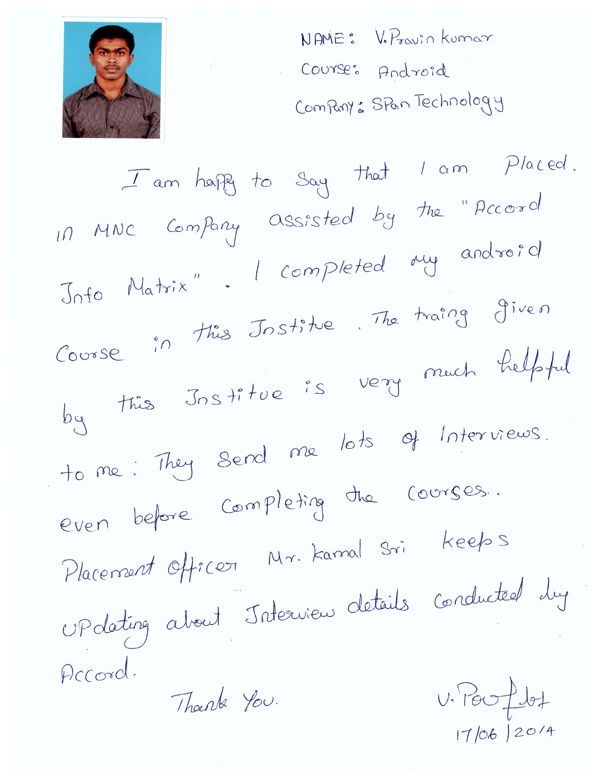 NAME: V.Pravin kumar
Course: Android
Company: SPan Technology
I am happy to say that I am Placed.
in MNC Company assisted by the "Accord
Info Matrix". I completed my android
Course in this Institue. The traing given
by this Institue is very much helpful
to me. They send me lots of Interviews.
even before completing the courses..
Placement officer Mr. kamal Sri keeps
updating about Interview details conducted by
Accord.
Thank You.
V.
17/06/2014